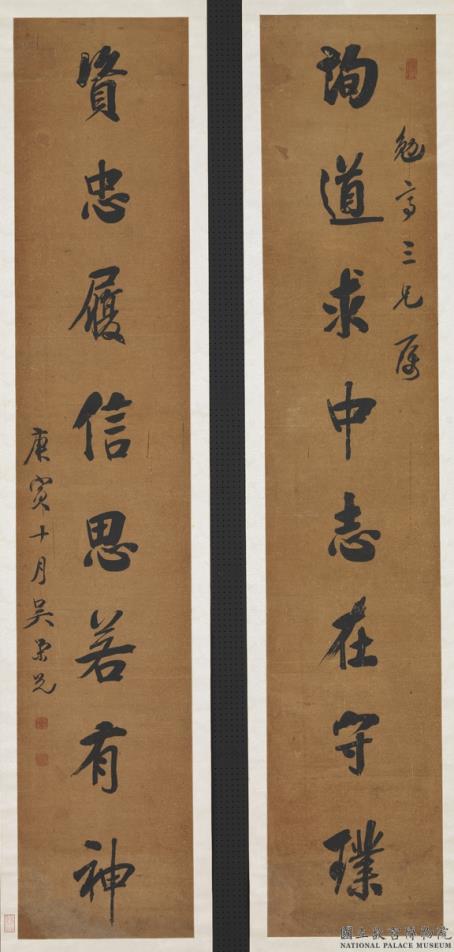 勉亭三兄屬
詢道求中志在守璞
資忠履信思若有神
庚寅十月吳榮光
國立故宮博物院
NATIONAL PALACE MUSEUM